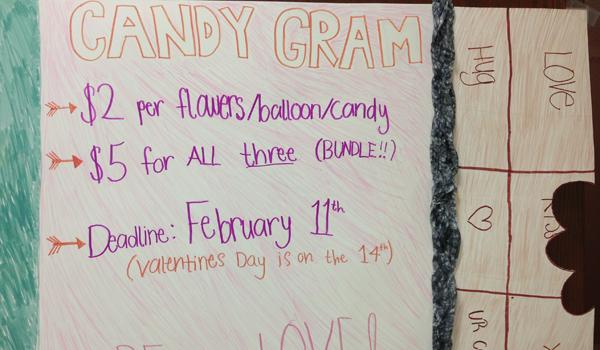 CANDY GRAM
$2 per flowers/balloon/candy
$5 for ALL three (BUNDLE!!)
Deadline: February 11th
(Valentines Day is on the 14th)
LOVE!
Hug
LOVE
UR